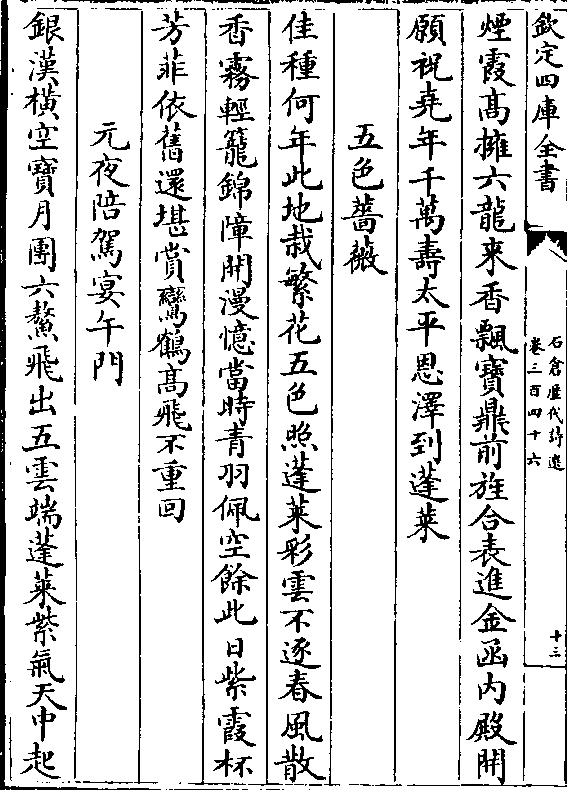 欽定四庫全書
石倉歷代詩選
卷三百四十六
十三
煙霞高擁六龍来香飄寶鼎前旌合表進金函内殿開
願祝堯年千萬壽太平恩澤到蓬莱
五色薔薇
佳種何年此地栽繁花五色照蓬莱彩雲不逐春風散
香霧輕籠錦障開漫憶當時青羽佩空餘此日紫霞杯
芳菲依舊還堪賞鸞鶴高飛不重回
元夜陪駕宴午門
銀漢橫空寶月團六鰲飛出五雲端蓬莱紫氣天中起